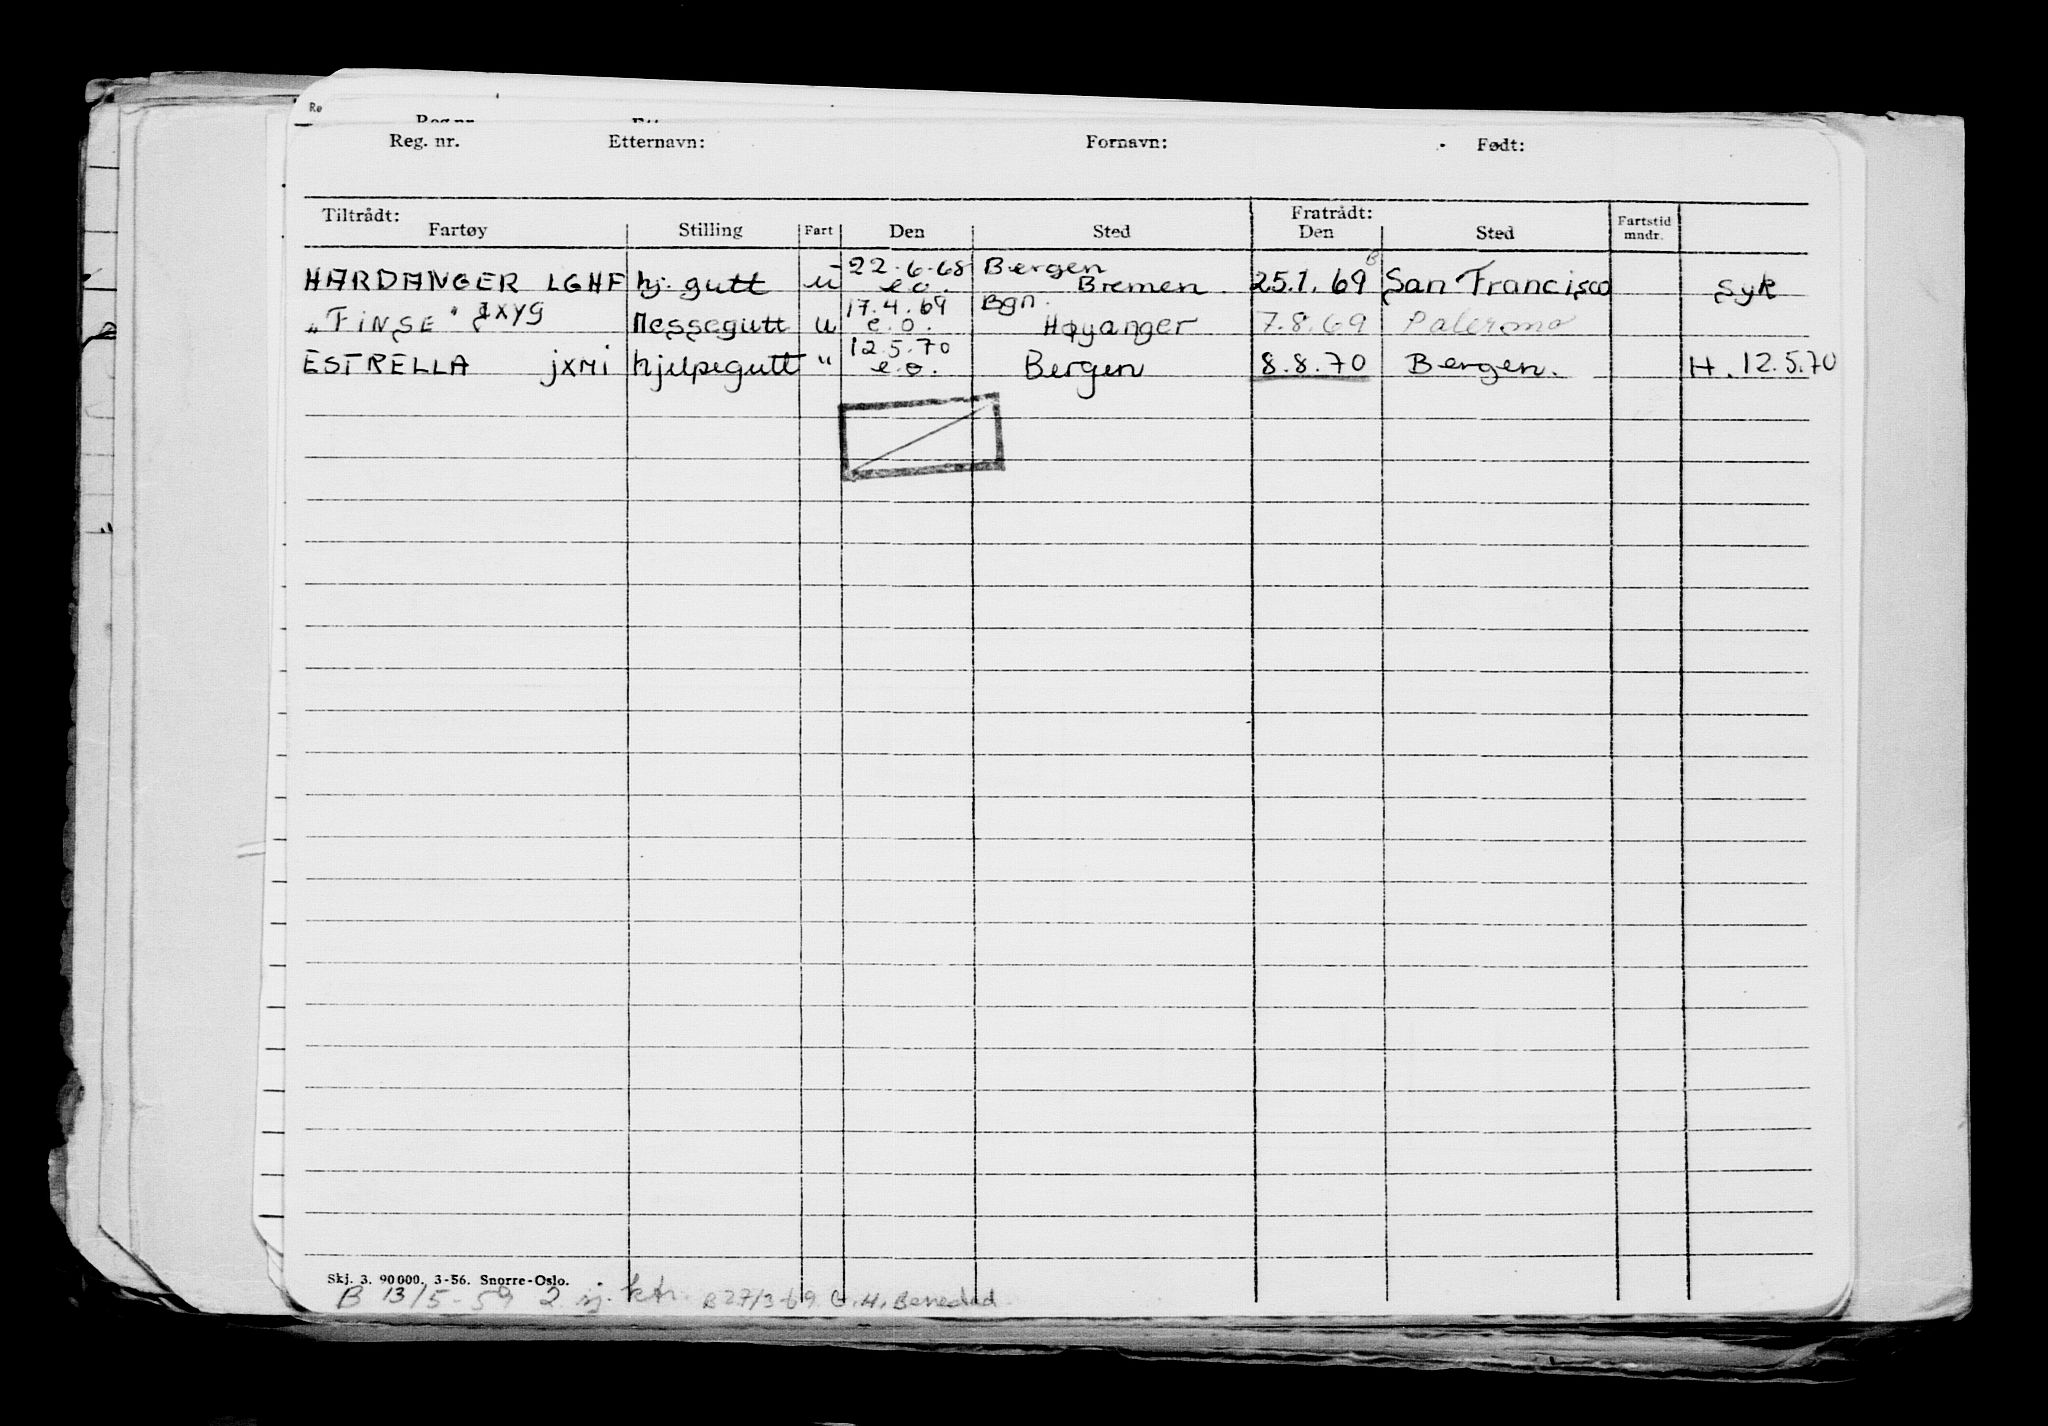 Reg. nr. Etternavn: Fornavn: Født:
Tiltrådt: Fratrådt:
Fartøy Stilling Fart Den Sted Den Sted Fartstid mndr.
22.6.68 Bergen B
HARDANGER LGHF hj. gutt u e.o. Bremen 25.1.69 San Francisco syk
17.4.69 Bgn.
"FINSE" JXYG Messegutt u e.o. Høyanger 7.8.69 Palermo
12.5.70
ESTRELLA JXMI hjelpegutt " e.o. Bergen 8.8.70 Bergen. H. 12.5.70
Skj. 3. 90000. 3-56. Snorre-Oslo.
B 13/5-59 2 sj. ktr. B 27/3-69 G.H.